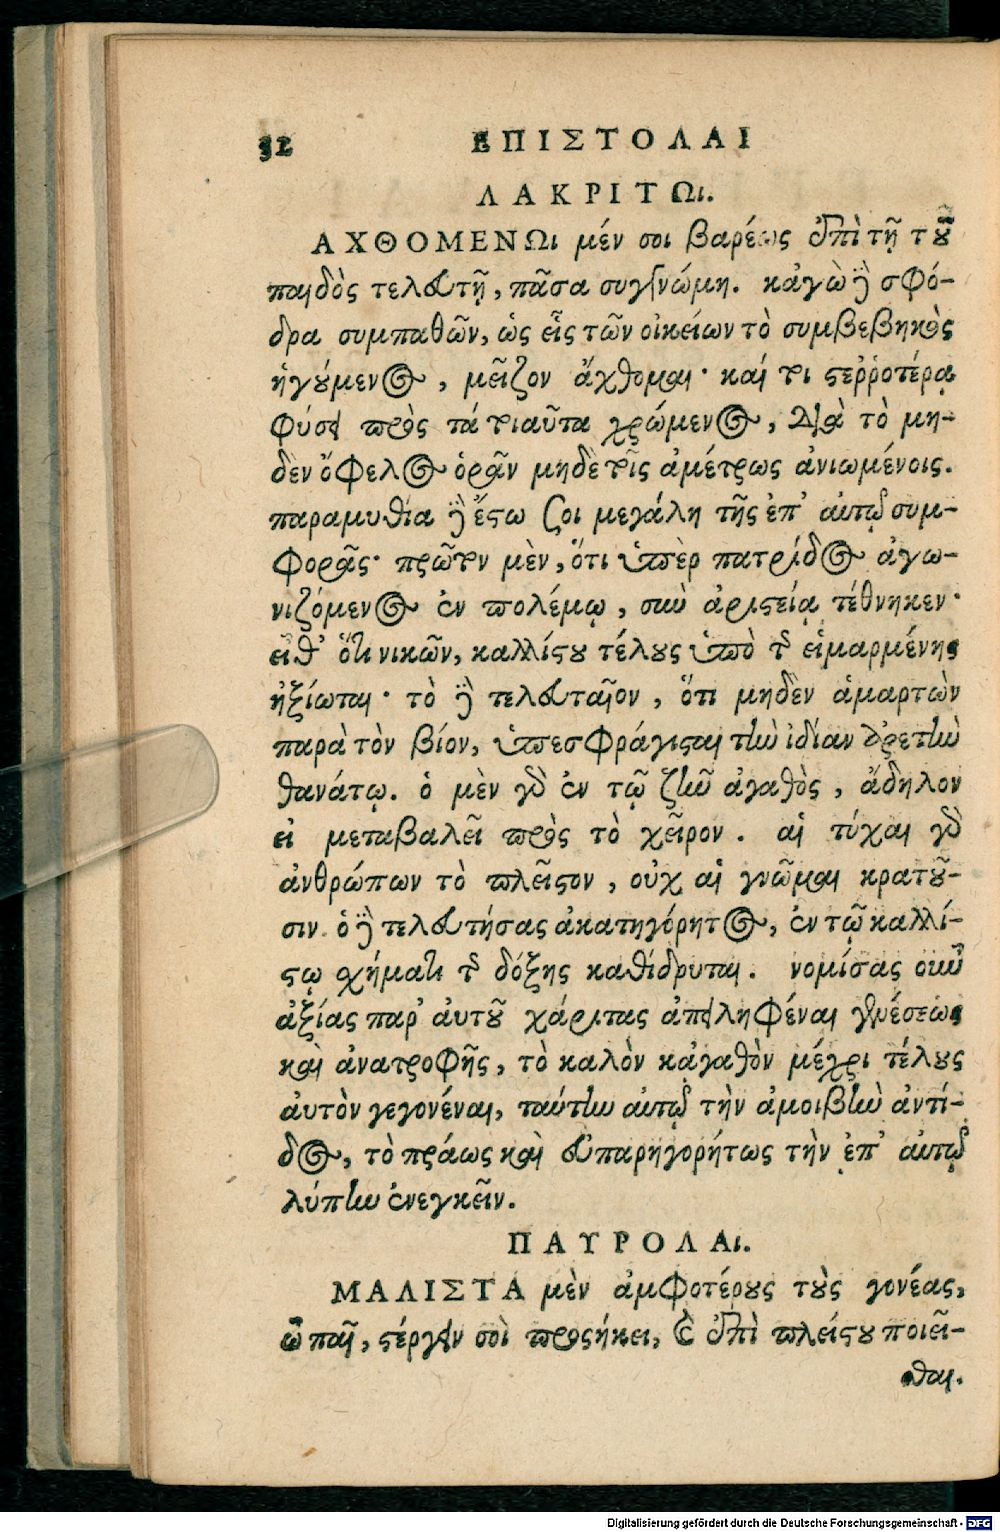 32 ΕΠΙΣΤΟΛΑΙ
ΛΑΚΡΙΤΩι.
ΑΧΘΟΜΕΝΩι μέν σοι βαρέως ἐπὶ τῇ τοῦ
παιδὸς τελευτῇ, πᾶσα συγγνώμη. κᾀγὼ δὲ σφό-
δρα συμπαθῶν, ὡς εἷς τῶν οἰκείων τὸ συμβεβηκὸς
ἡγούμενος, μεῖζον ἄχθομαι· καί τοι στεῤῥοτέρᾳ
φύσει πρὸς τά τοιαῦτα χρώμενος, διὰ τὸ μη-
δὲν ὄφελος ὁρᾷν μηδὲ τοῖς ἀμέτρως ἀνιωμένοις.
παραμυθία δὲ ἔστω ζοι μεγάλη τῆς ἐπ᾽ αὐτῷ συμ-
φορᾶς· πρῶτον μὲν, ὅτι ὑπὲρ πατρίδος ἀγω-
νιζόμενος ἐν πολέμῳ, σὺν ἀριστείᾳ τέθνηκεν·
εἶθ᾽ ὅτι νικῶν, καλλίστου τέλους ὑπὸ τῆς εἱμαρμένης
ἠξίωται· τὸ δὲ τελευταῖον, ὅτι μηδὲν ἁμαρτὼν
παρὰ τὸν βίον, ὑπεσφράγισται τὴν ἰδίαν ἀρετὴν
θανάτῳ. ὁ μὲν γὰρ ἐν τῷ ζῆν ἀγαθὸς, ἄδηλον
εἰ μεταβαλεῖ πρὸς τὸ χεῖρον. αἱ τύχαι γὰρ
ἀνθρώπων τὸ πλεῖστον, οὐχ αἱ γνῶμαι κρατοῦ-
σιν. ὁ δὲ τελευτήσας ἀκατηγόρητος, ἐν τῷ καλλί-
στῳ σχήματι τῆς δόξης καθίδρυται. νομίσας οὖν
ἀξίας παρ᾽ αὐτοῦ χάριτας ἀπειληφέναι γενέσεως
καὶ ἀνατροφῆς, τὸ καλὸν κᾀγαθὸν μέχρι τέλους
αὐτὸν γεγονέναι, ταύτην αὐτῷ τὴν ἀμοιβὴν ἀντί-
δος, τὸ πράως καὶ εὐπαρηγορήτως τὴν ἐπ᾽ αὐτῷ
λύπην ἐνεγκεῖν.
ΠΑΥΡΟΛΑι.
ΜΑΛΙΣΤΑ μὲν ἀμφοτέρους τοὺς γονέας,
ὦ παῖ, στέργειν σοὶ προσήκει, καὶ ἐπὶ πλείστου ποιεῖ-
σθαι.
Digitalisierung gefördert durch die Deutsche Forschungsgemeinschaft - DFG